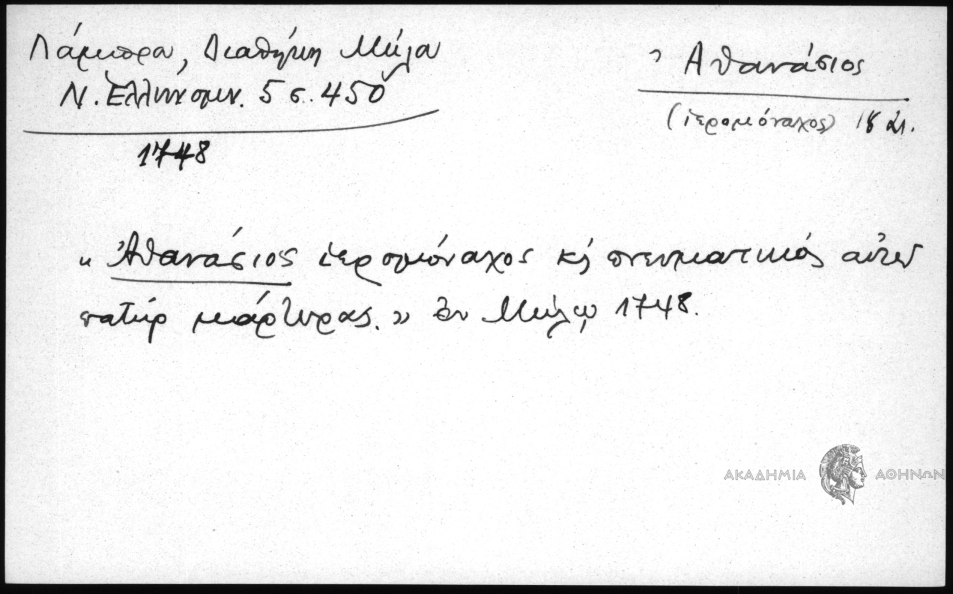 Λάμπρου, Διαθήκη Μήλου
Ν. Ἑλληνομν. 5 σ. 450
1748
Ἀθανάσιος
(ἱερομόναχος) 18 αι.
« Ἀθανάσιος ἱερομόναχος κὴ πνευματικός αὐτοῦ
πατήρ μάρτυρας. » Ἐν Μήλῳ 1748.
ΑΚΑΔΗΜΙΑ ΑΘΗΝΩΝ